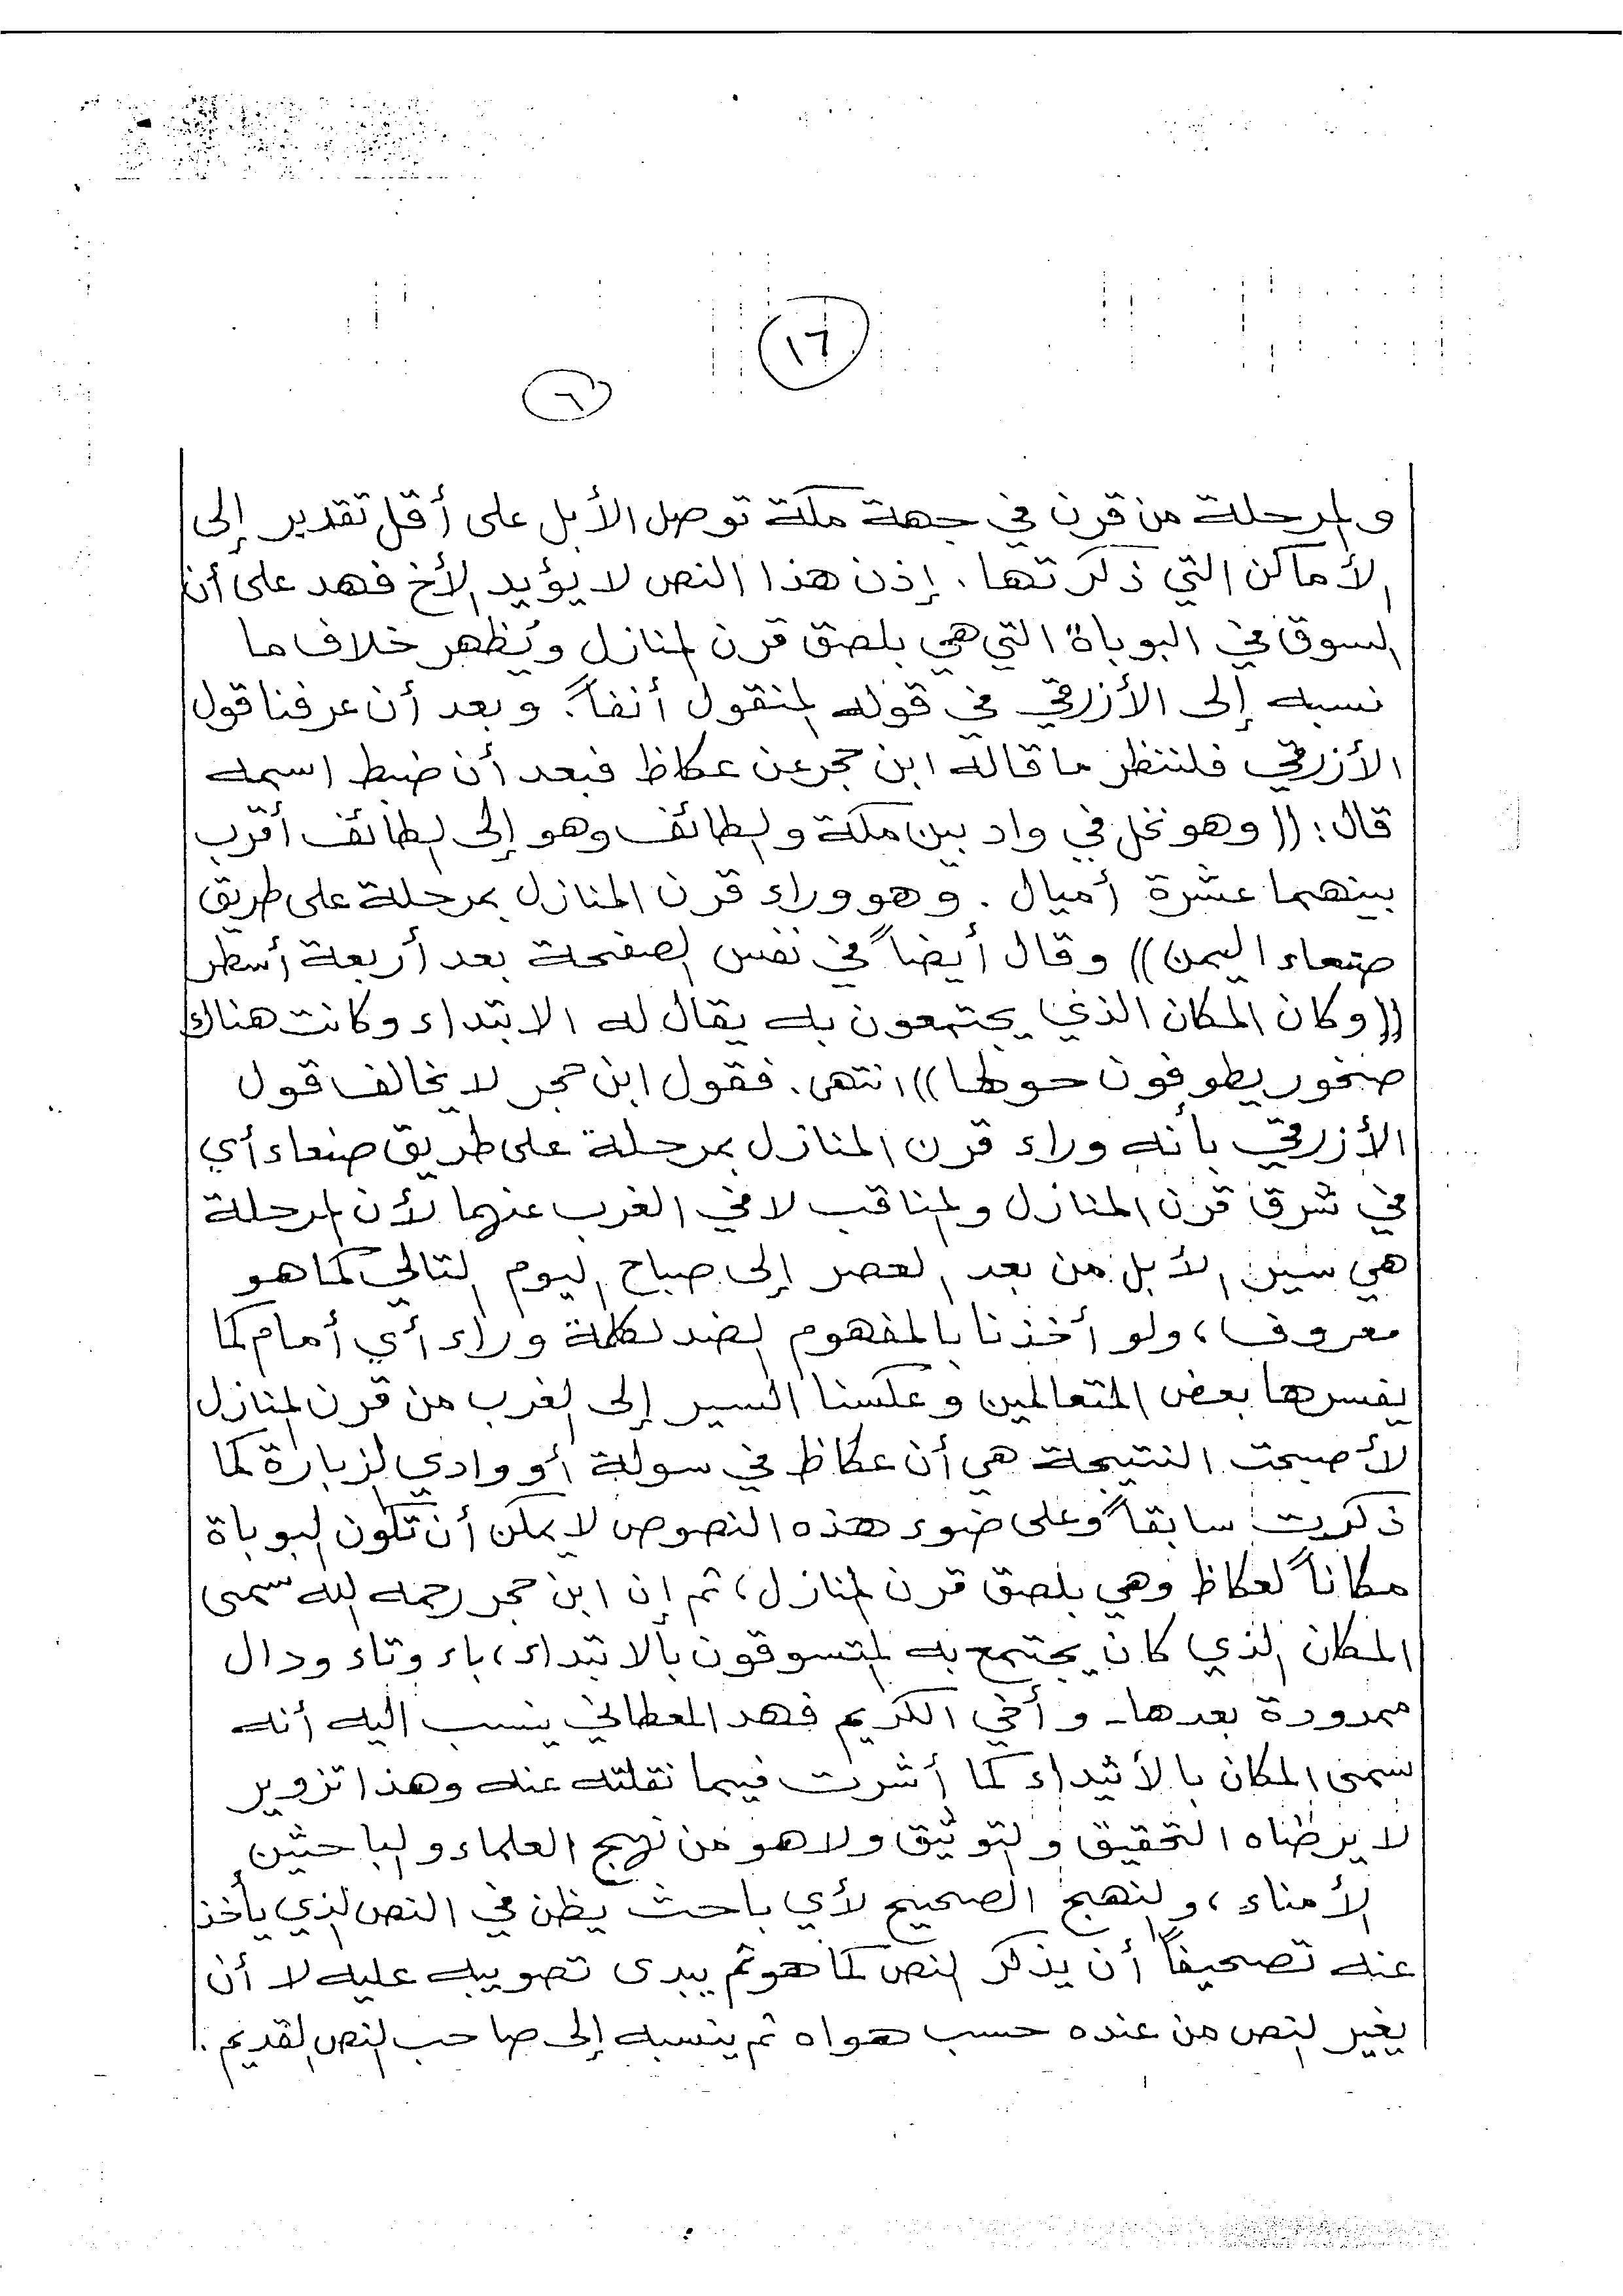 ١٦
٦
والمرحلة من قرن في جهة مكة توصل الأبل على أقل تقدير إلى
الأماكن التي ذكرتها. إذن هذا النص لا يؤيد الأخ فهد على أن
السوق في البوباة التي هي بلصق قرن المنازل ويُظهر خلاف ما
نسبه إلى الأزرقي في قوله المنقول أنفاً. وبعد أن عرفنا قول
الأزرقي فلننظر ما قاله ابن حجر عن عكاظ فبعد أن ضبط اسمه
قال: ((وهو نخل في واد بين مكة والطائف وهو إلى الطائف أقرب
بينهما عشرة أميال. وهو وراء قرن المنازل بمرحلة على طريق
صنعاء اليمن)) وقال أيضاً في نفس الصفحة بعد أربعة أسطر
((وكان المكان الذي يجتمعون به يقال له الابتداء وكانت هناك
صخور يطوفون حولها)) انتهى. فقول ابن حجر لا يخالف قول
الأزرقي بأنه وراء قرن المنازل بمرحلة على طريق صنعاء أي
في شرق قرن المنازل والمناقب لا في الغرب عنهما لأن المرحلة
هي سير الأبل من بعد العصر إلى صباح اليوم التالي كما هو
معروف، ولو أخذنا بالمفهوم الضد لكلمة وراء أي أمام كما
يفسرها بعض المتعالمين وعكسنا السير إلى الغرب من قرن المنازل
لأصبحت النتيجة هي أن عكاظ في سولة أو وادي الزبارة كما
ذكرت سابقاً وعلى ضوء هذه النصوص لا يمكن أن تكون البوباة
مكاناً لعكاظ وهي بلصق قرن المنازل، ثم إن ابن حجر رحمه الله سمى
المكان الذي كان يجتمع به المتسوقون بالابتداء، باء وتاء ودال
ممدودة بعدها- وأخي الكريم فهد المعطاني ينسب اليه أنه
سمى المكان بالأثيداء كما أشرت فيما نقلته عنه وهذا تزوير
لا يرظاه التحقيق والتوثيق ولا هو من نهج العلماء والباحثين
الأمناء، والنهج الصحيح لأي باحث يظن في النص الذي يأخذ
عنه تصحيفاً أن يذكر النص كما هو ثم يبدى تصويبه عليه لا أن
يغير النص من عنده حسب هواه ثم ينسبه إلى صاحب النص القديم.